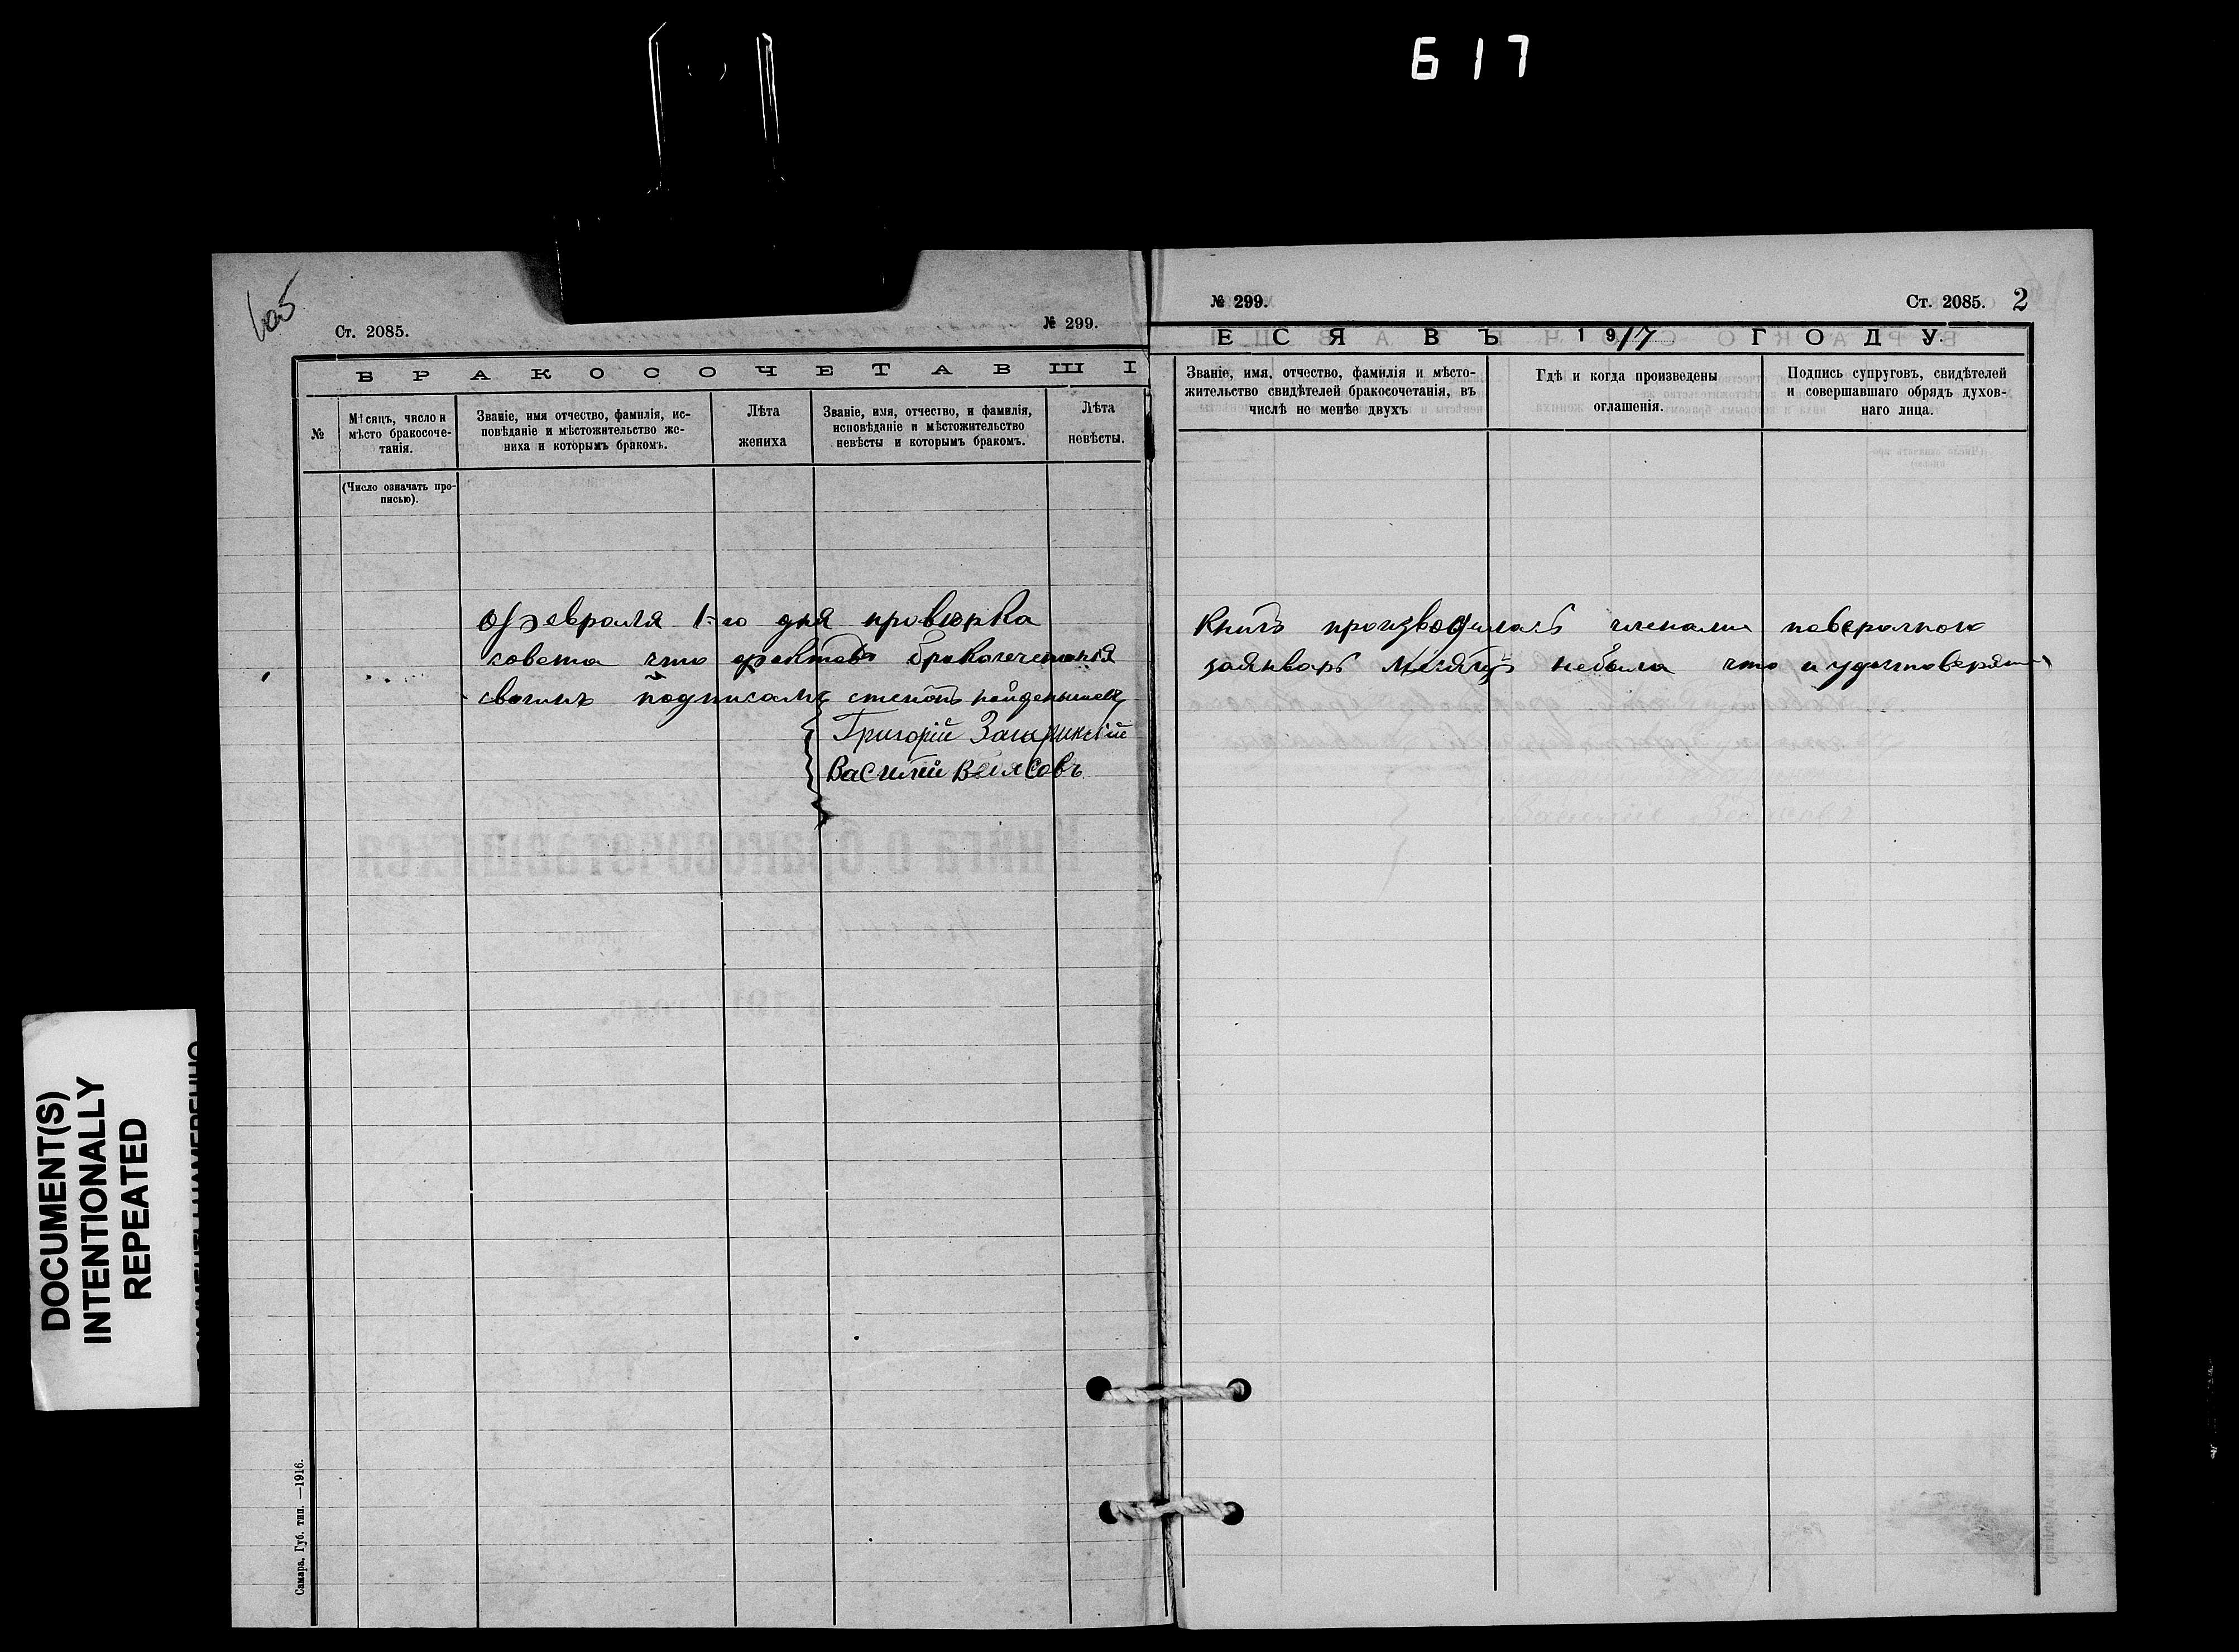 617
605
Ст. 2085.
№ 299.
БРАКОСОЧЕТАВШІ
№
Мѣсяцъ, число и
мѣсто бракосоче-
танія.
(Число означать про-
писью).
Званіе, имя отчество, фамилія, ис-
повѣданіе и мѣстожительство же-
ниха и которымъ бракомъ.
Лѣта
жениха
Званіе, имя, отчество, и фамилія,
исповѣданіе и мѣстожительство
невѣсты и которымъ бракомъ.
Лѣта
невѣсты.
Февраля 1-го дня провѣрка
совета что фактовъ бракосочетанія
своимъ подписамъ
Григорій
Василій Власовъ
Самара. Губ. тип. —1916.
№ 299.
Ст. 2085. 2
ЕСЯ ВЪ 1917 ГОДУ.
Званіе, имя, отчество, фамилія и мѣсто-
жительство свидѣтелей бракосочетанія, въ
числѣ не менѣе двухъ
Гдѣ и когда произведены
оглашенія.
Подпись супруговъ, свидѣтелей
и совершавшаго обрядъ духов-
наго лица.
книгъ производилась членами
заянварь месяцъ небыла что и удостоверяим
DOCUMENT(S)
INTENTIONALLY
REPEATED